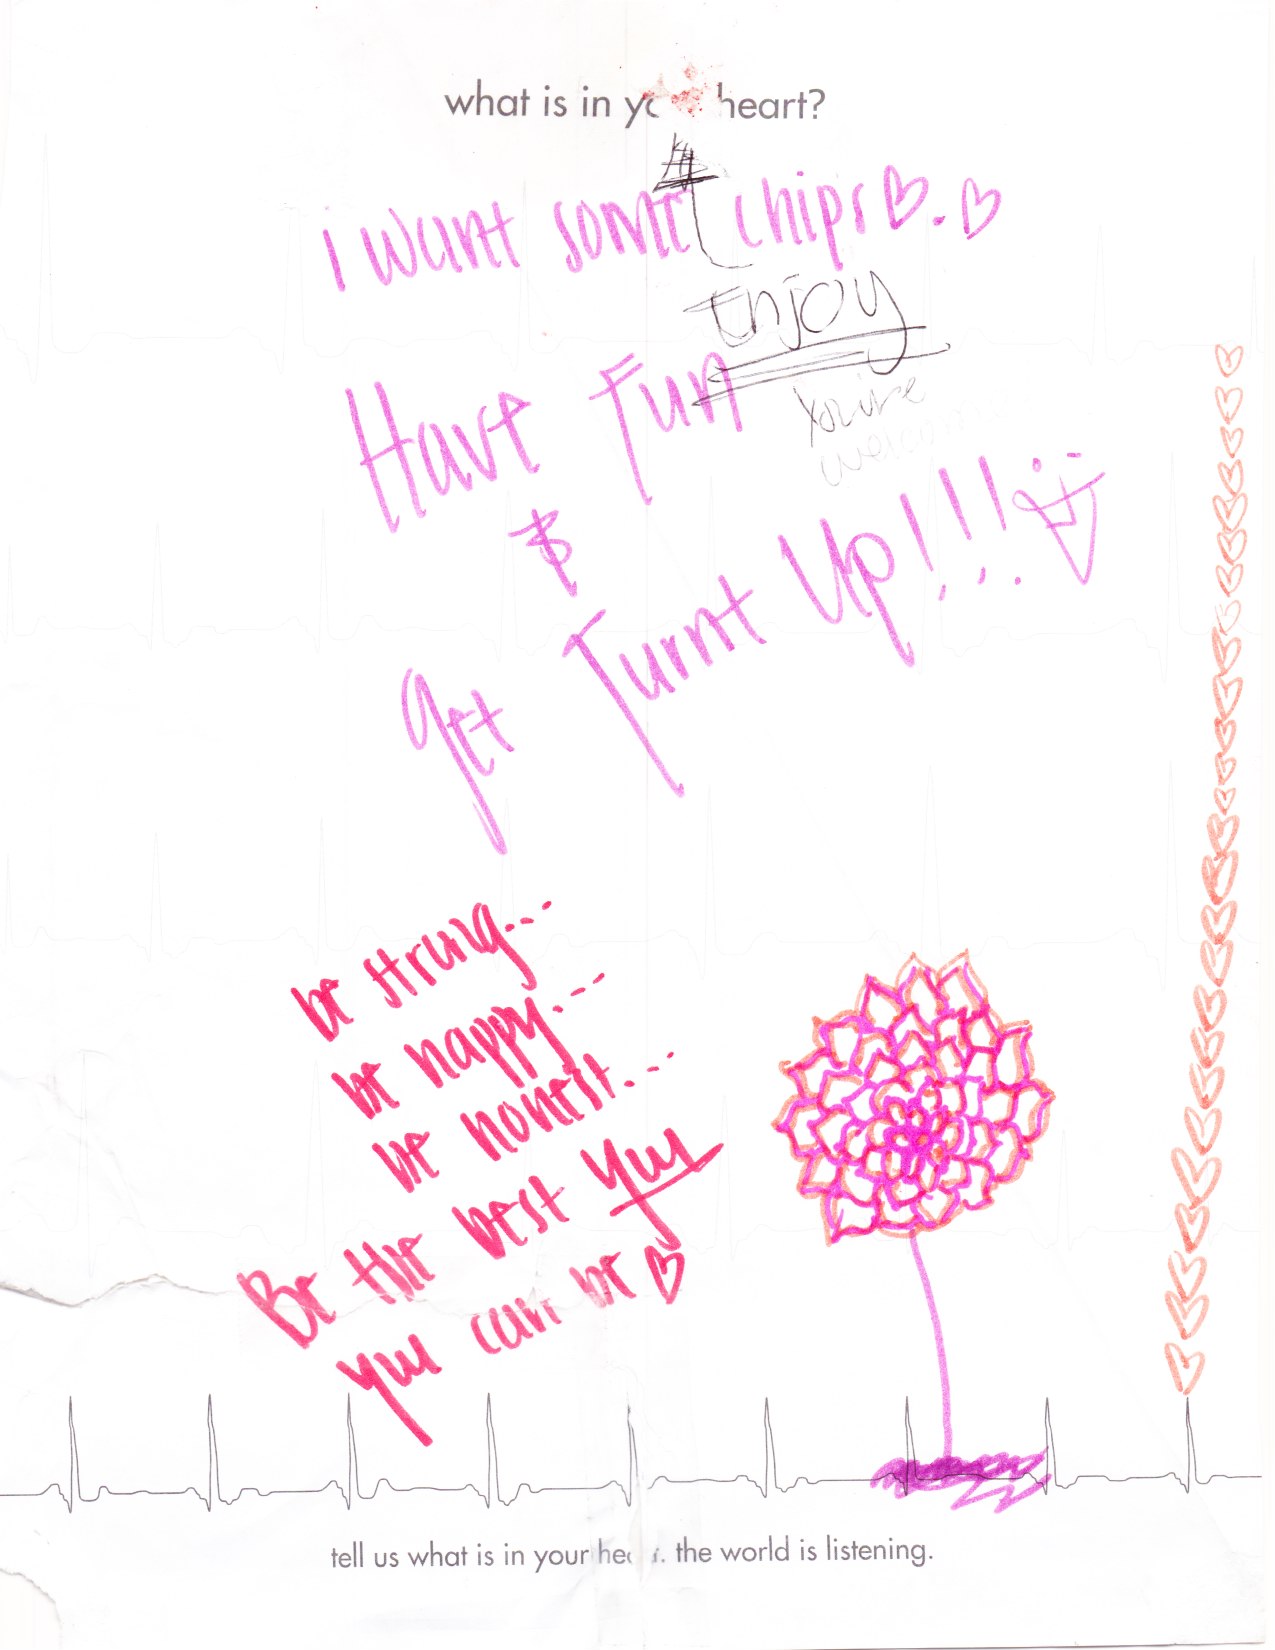 what is in yo heart?
i want some chips ♡. ♡
Enjoy
Have Fun
you're
welcome
&
get Turnt Up!!!
be strong...
be happy...
be honest...
Be the best you
you can be ♡
tell us what is in your hea r. the world is listening.